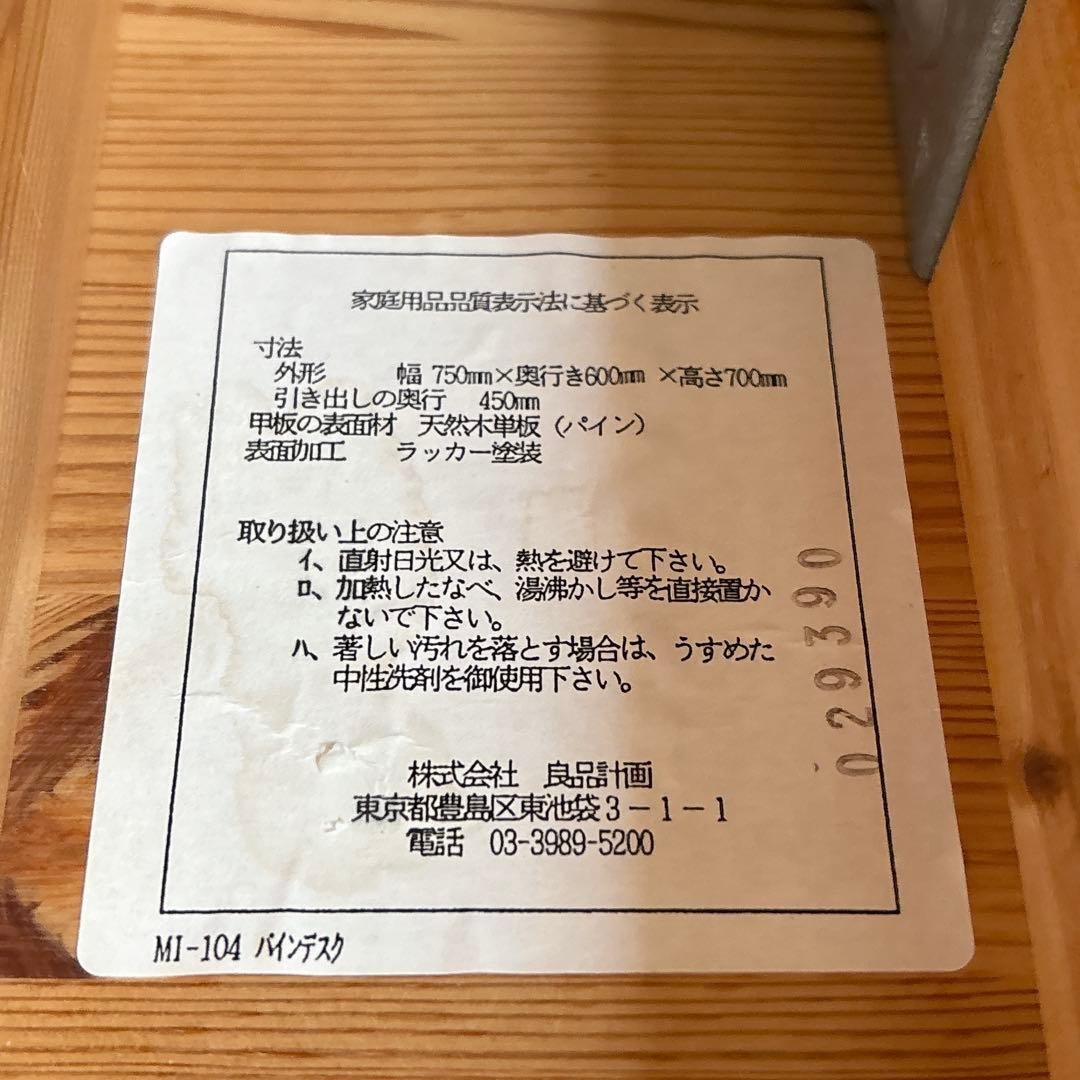 家庭用品品質表示法に基づく表示
寸法
外形 幅 750mm×奥行き600mm ×高さ700mm
引き出しの奥行 450mm
甲板の表面材 天然木単板（パイン）
表面加工 ラッカー塗装
取り扱い上の注意
イ、直射日光又は、熱を避けて下さい。
ロ、加熱したなべ、湯沸かし等を直接置か
ないで下さい。
ハ、著しい汚れを落とす場合は、うすめた
中性洗剤を御使用下さい。
株式会社 良品計画
東京都豊島区東池袋3－1－1
電話 03-3989-5200
029390
MI-104 パインデスク